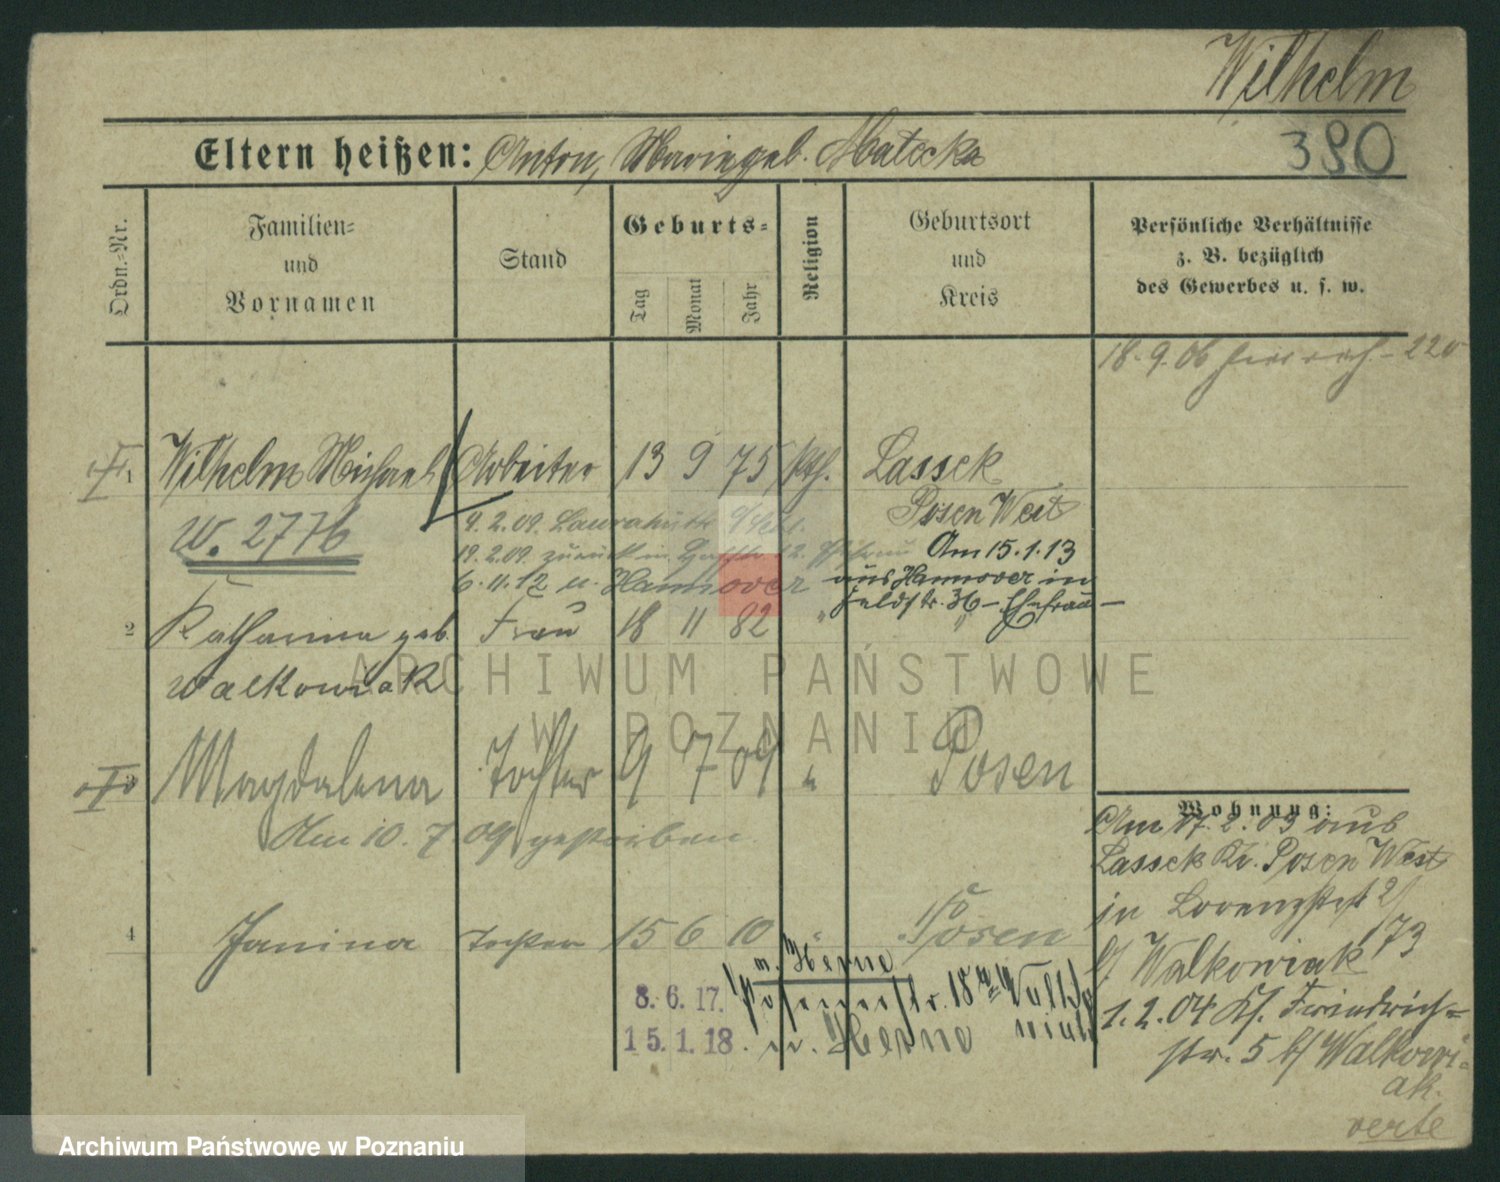 Wilhelm
380
Eltern heißen: Anton, Marie geb. Matecka
Ordn.-Nr.
Familien- und Vornamen
Stand
Geburts-
Tag
Monat
Jahr
Religion
Geburtsort und Kreis
Persönliche Verhältnisse
z. B. bezüglich
des Gewerbes u. s. w.
18. 9. 06 220
1 Wilhelm Michael Arbeiter 13 9 75 kth. Lassek
Posen West
W. 2776
9. 2. 09. Laurahütte
19. 2. 09. zurück in 12. Am 15. 1. 13
6. 11. 12 n. Hannover aus Hannover in
Feldstr. 36 – Ehefrau –
2 Katharina geb. Frau 18 11 82 "
Walkowiak
3 Magdalena Tochter 9 7 09 " Posen
Am 10. 7. 09 gestorben.
4 Janina Tochter 15 6 10 " Posen
n. Herne
8. 6. 17. 18
15. 1. 18. n. Herne
Wohnung:
Am 17. 2. 03 aus
Lassek Kr. Posen West
in Lorenzstr. 2/
b/ Walkowiak 173
1. 2. 04 Kl. Friedrich=
str. 5 b/ Walkowi=
ak.
verte
ARCHIWUM PAŃSTWOWE
W POZNANIU
Archiwum Państwowe w Poznaniu